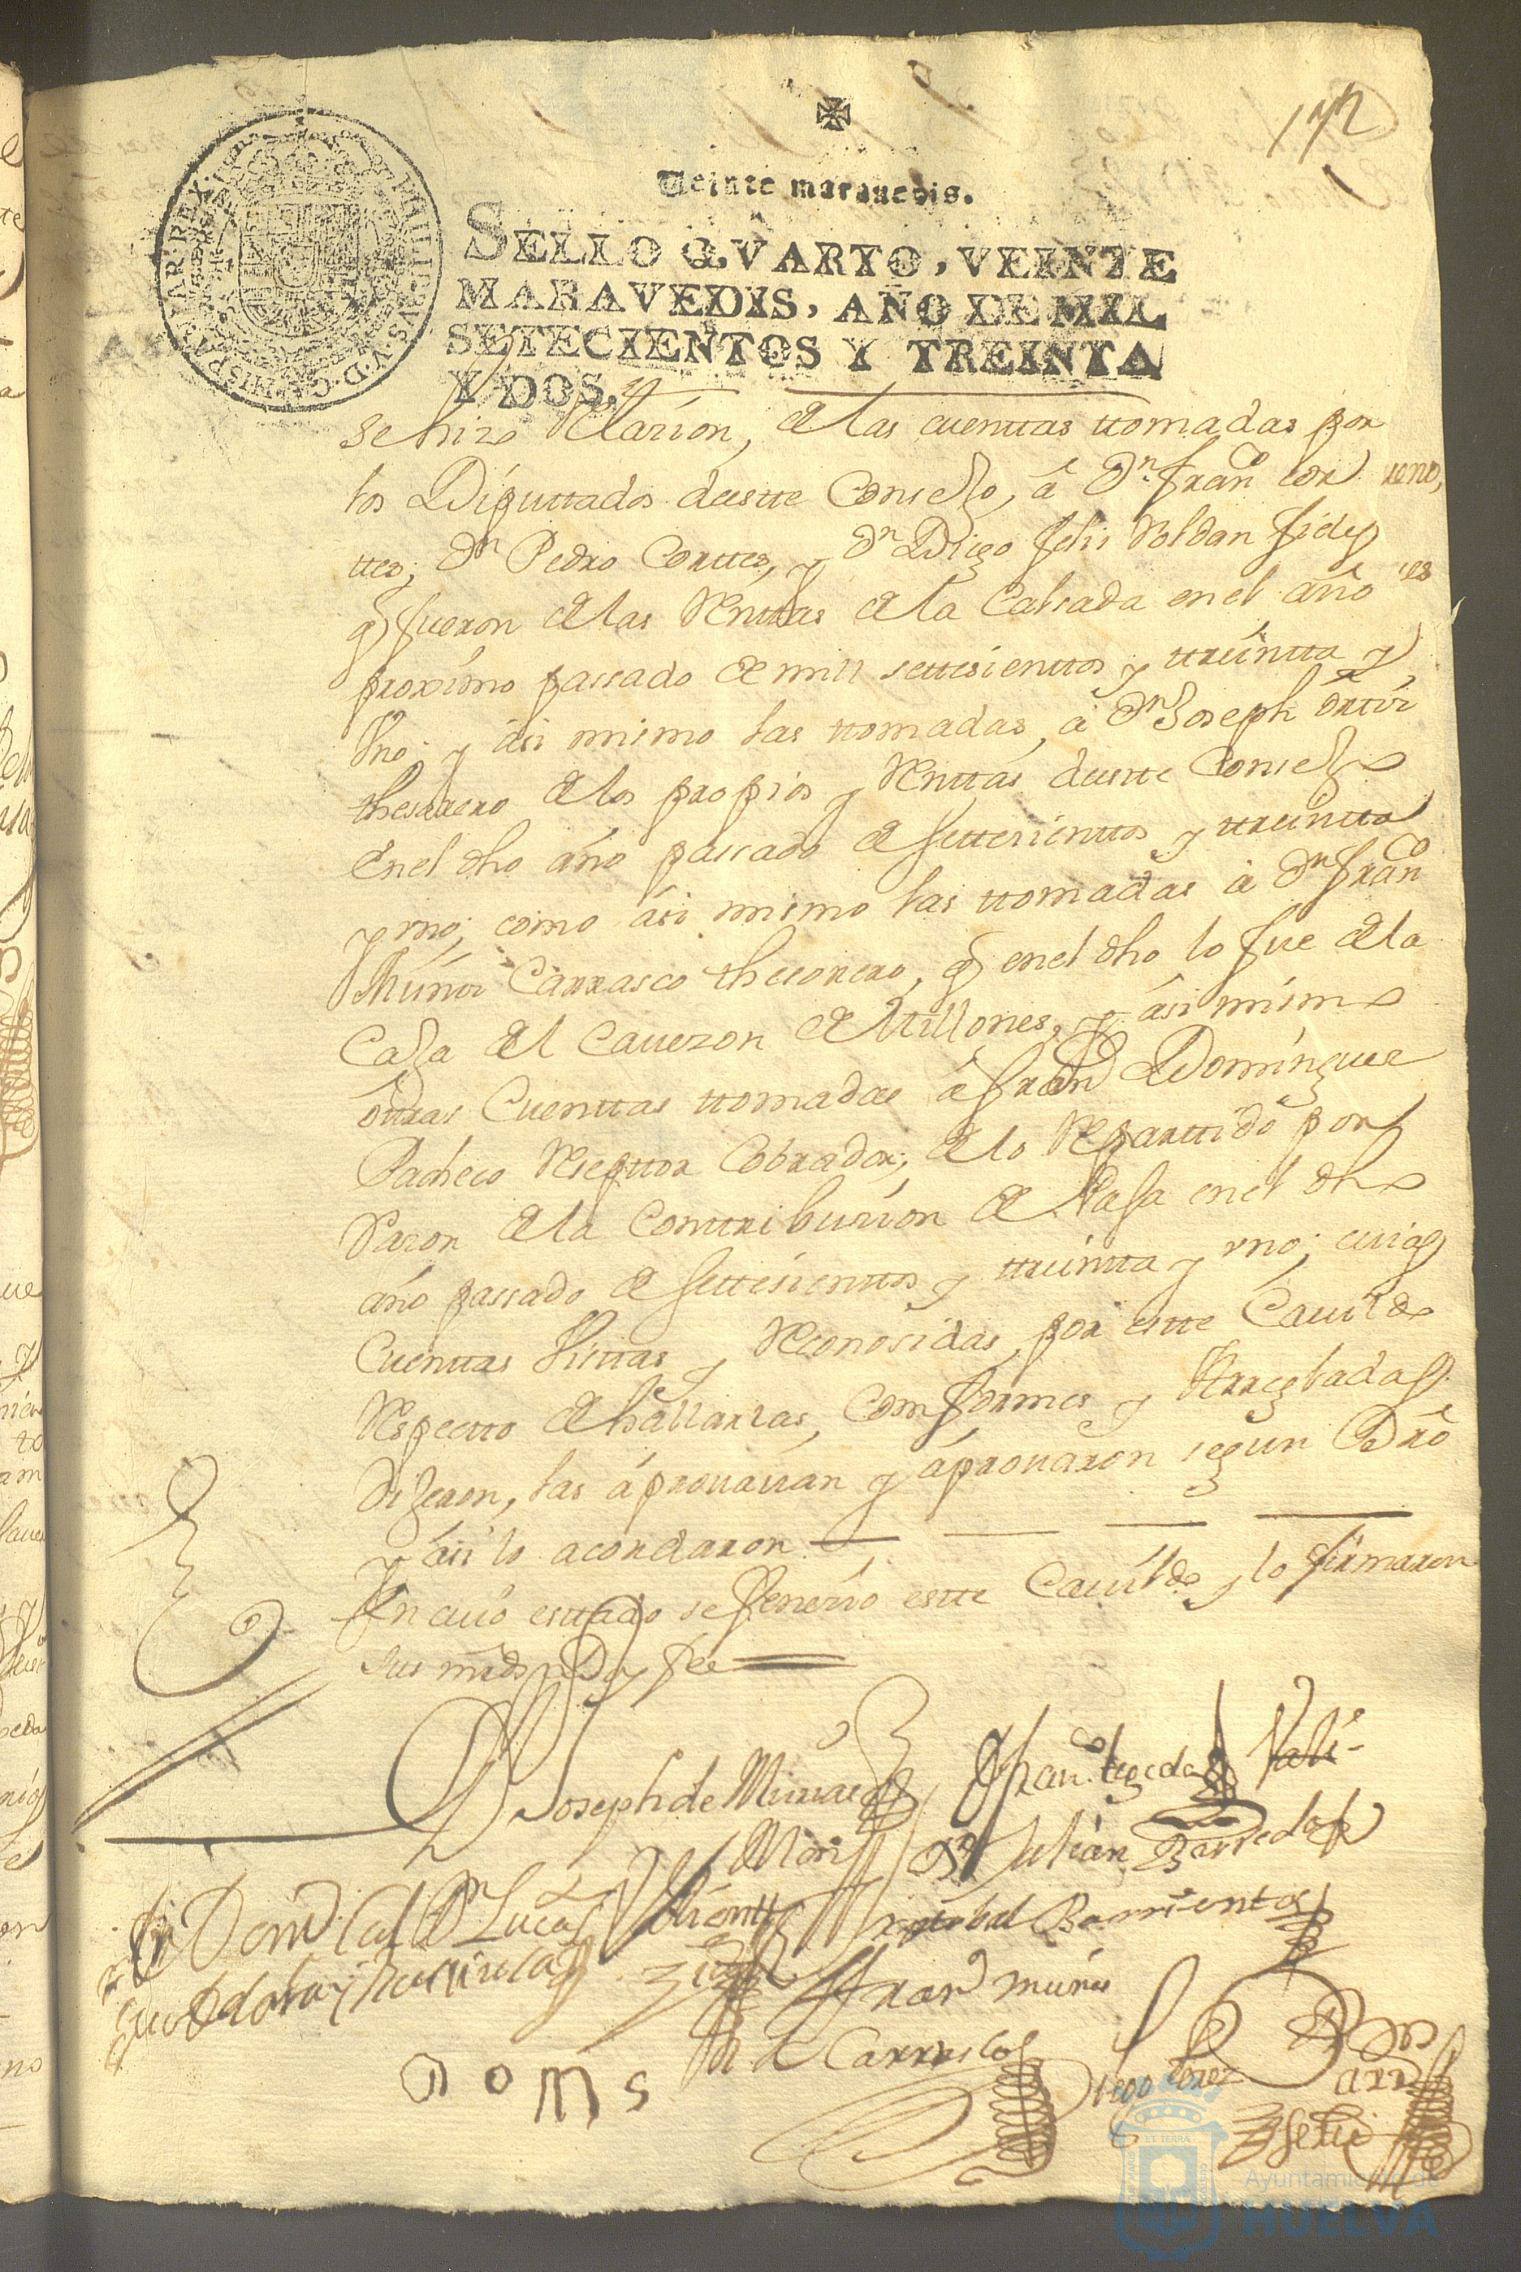 172
Veinte maravedis.
SELLO QVARTO, VEINTE
MARAVEDIS, AÑO DE MIL
SETECIENTOS Y TREINTA
Y DOS.
PHILIPPUS V D G HISPANIAR REX
se hizo Relazion, de las cuenttas ttomadas por
los Diputtados de estte Consejo, á Dn Franco
ttes; Dn Pedro Corttes, y Dn Diego Felis Roldan fieles
q fueron de las Renttas de la Calsada en el año
proximo passado de mill settesienttos y ttreintta y
Vno; y asi mismo las ttomadas, á Dn Joseph Orttiz
thesorero de los propios y Renttas de estte Consejo
en el dho año passado de settesienttos y ttreintta
y vno; como asi mismo las ttomadas á Dn Franco
Muñiz Carrasco thesorero, q en el dho lo fue de la
Caja del Cavezon de Millones, y asi mismo
ottras Cuenttas ttomadas á Franco Dominguez
Pacheco Reseptor Cobrador, de lo Reparttido por
Razon de la Conttribuzion de Paja en el dho
año passado de settesienttos y ttreintta y vno; cuias
Cuenttas Vistas y Reconosidas por estte Cavildo
Respectto de hallarlas, Comformes y Arregladas
Dijeron, las aprovavan y aprovaron segun Dro
Y asi lo acordaron
En cuio esttado se fenezio estte Cavildo y lo firmaron
sus mrds Doy fee
Dn Joseph de
Dn Julian Barreda
Dn Lucas
Xptobal Barrientos
Fran Muñiz
Carrasco
Diego Lopez
Felis
Ayuntamiento de
HUELVA